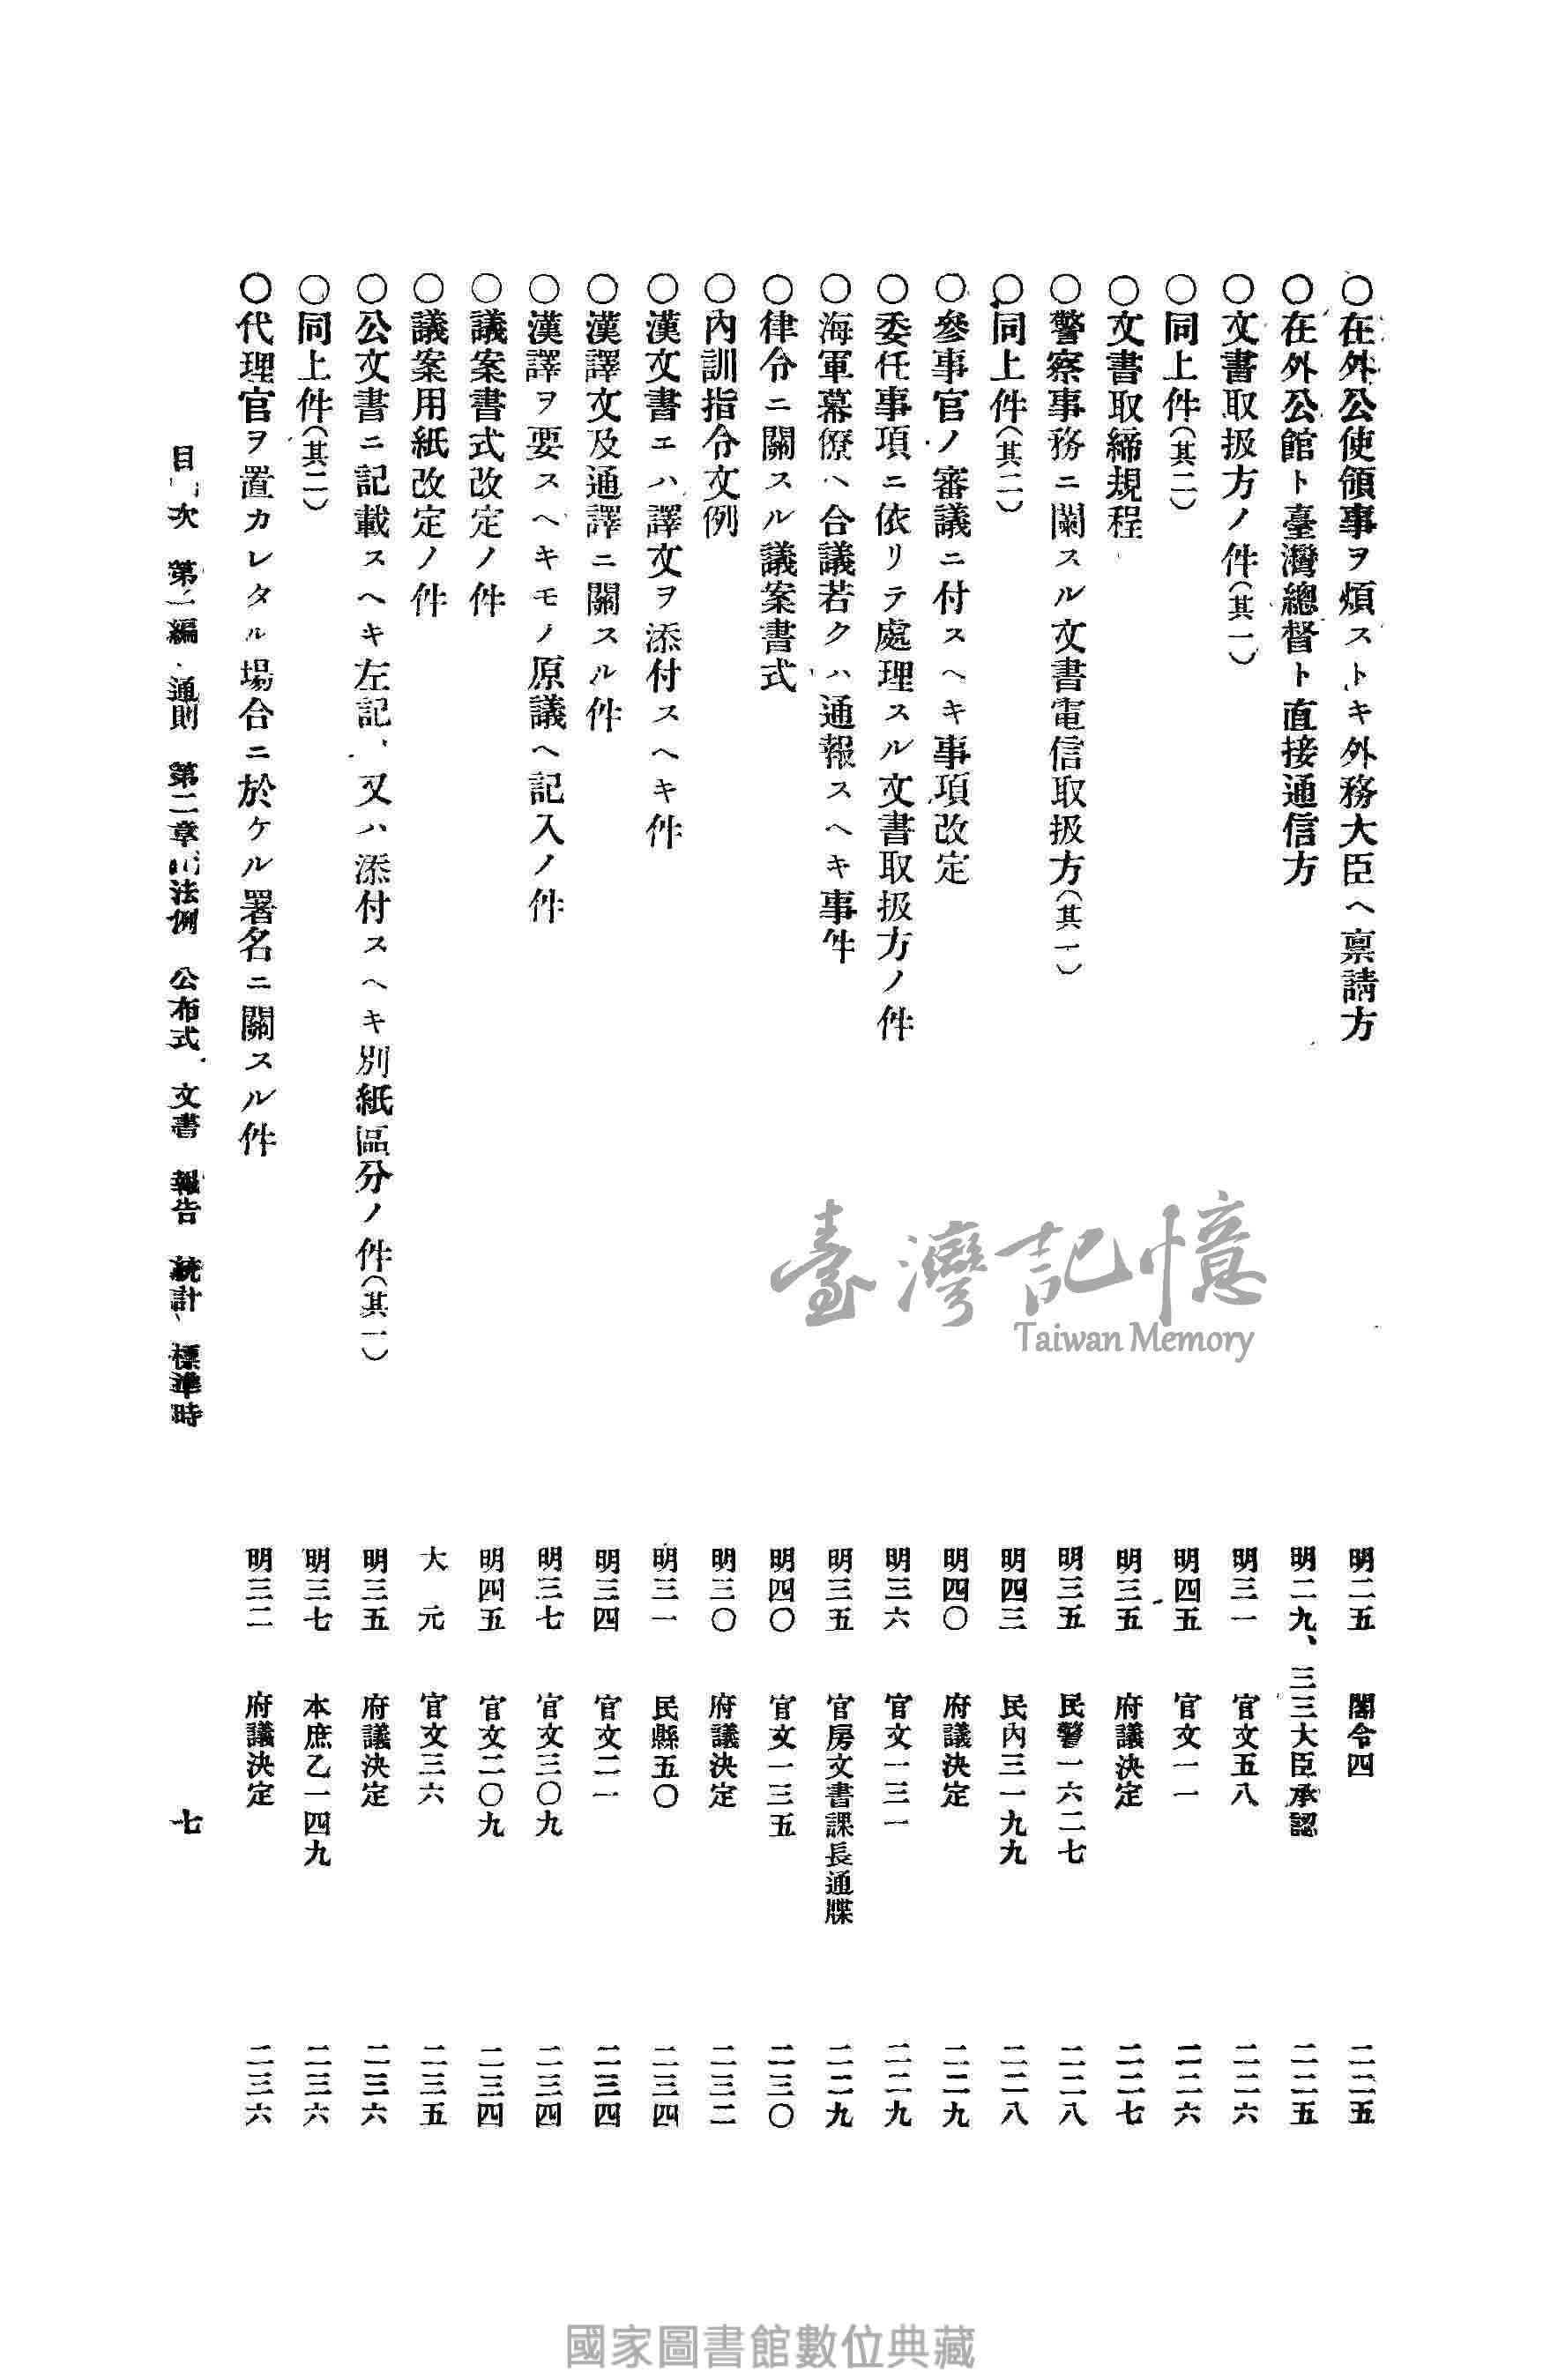 〇在外公使領事ヲ煩ストキ外務大臣ヘ稟請方 明二五 閣令四 二二五
〇在外公館ト臺灣總督ト直接通信方 明二九、三三大臣承認 二二五
〇文書取扱方ノ件(其一) 明三一 官文五八 二二六
〇同上件(其二) 明四五 官文一一 二二六
〇文書取締規程 明三五 府議決定 二二七
〇警察事務ニ關スル文書電信取扱方(其一) 明三五 民警一六二七 二二八
〇同上件(其二) 明四三 民內三一九九 二二八
〇參事官ノ審議ニ付スヘキ事項改定 明四〇 府議決定 二二九
〇委任事項ニ依リテ處理スル文書取扱方ノ件 明三六 官文一三一 二二九
〇海軍幕僚ヘ合議若クハ通報スヘキ事件 明三五 官房文書課長通牒 二二九
〇律令ニ關スル議案書式 明四〇 官文一三五 二三〇
〇內訓指令文例 明三〇 府議決定 二三二
〇漢文書エハ譯文ヲ添付スヘキ件 明三一 民縣五〇 二三四
〇漢譯文及通譯ニ關スル件 明三四 官文二一 二三四
〇漢譯ヲ要スヘキモノ原議ヘ記入ノ件 明三七 官文三〇九 二三四
〇議案書式改定ノ件 明四五 官文二〇九 二三四
〇議案用紙改定ノ件 大元 官文三六 二三五
〇公文書ニ記載スヘキ左記、又ハ添付スヘキ別紙區分ノ件(其一) 明三五 府議決定 二三六
〇同上件(其二) 明三七 本庶乙一四九 二三六
〇代理官ヲ置カレタル場合ニ於ケル署名ニ關スル件 明三二 府議決定 二三六
目次 第二編 通則 第二章 法例 公布式 文書 報告 統計 標準時 七
臺灣記憶
Taiwan Memory
國家圖書館數位典藏